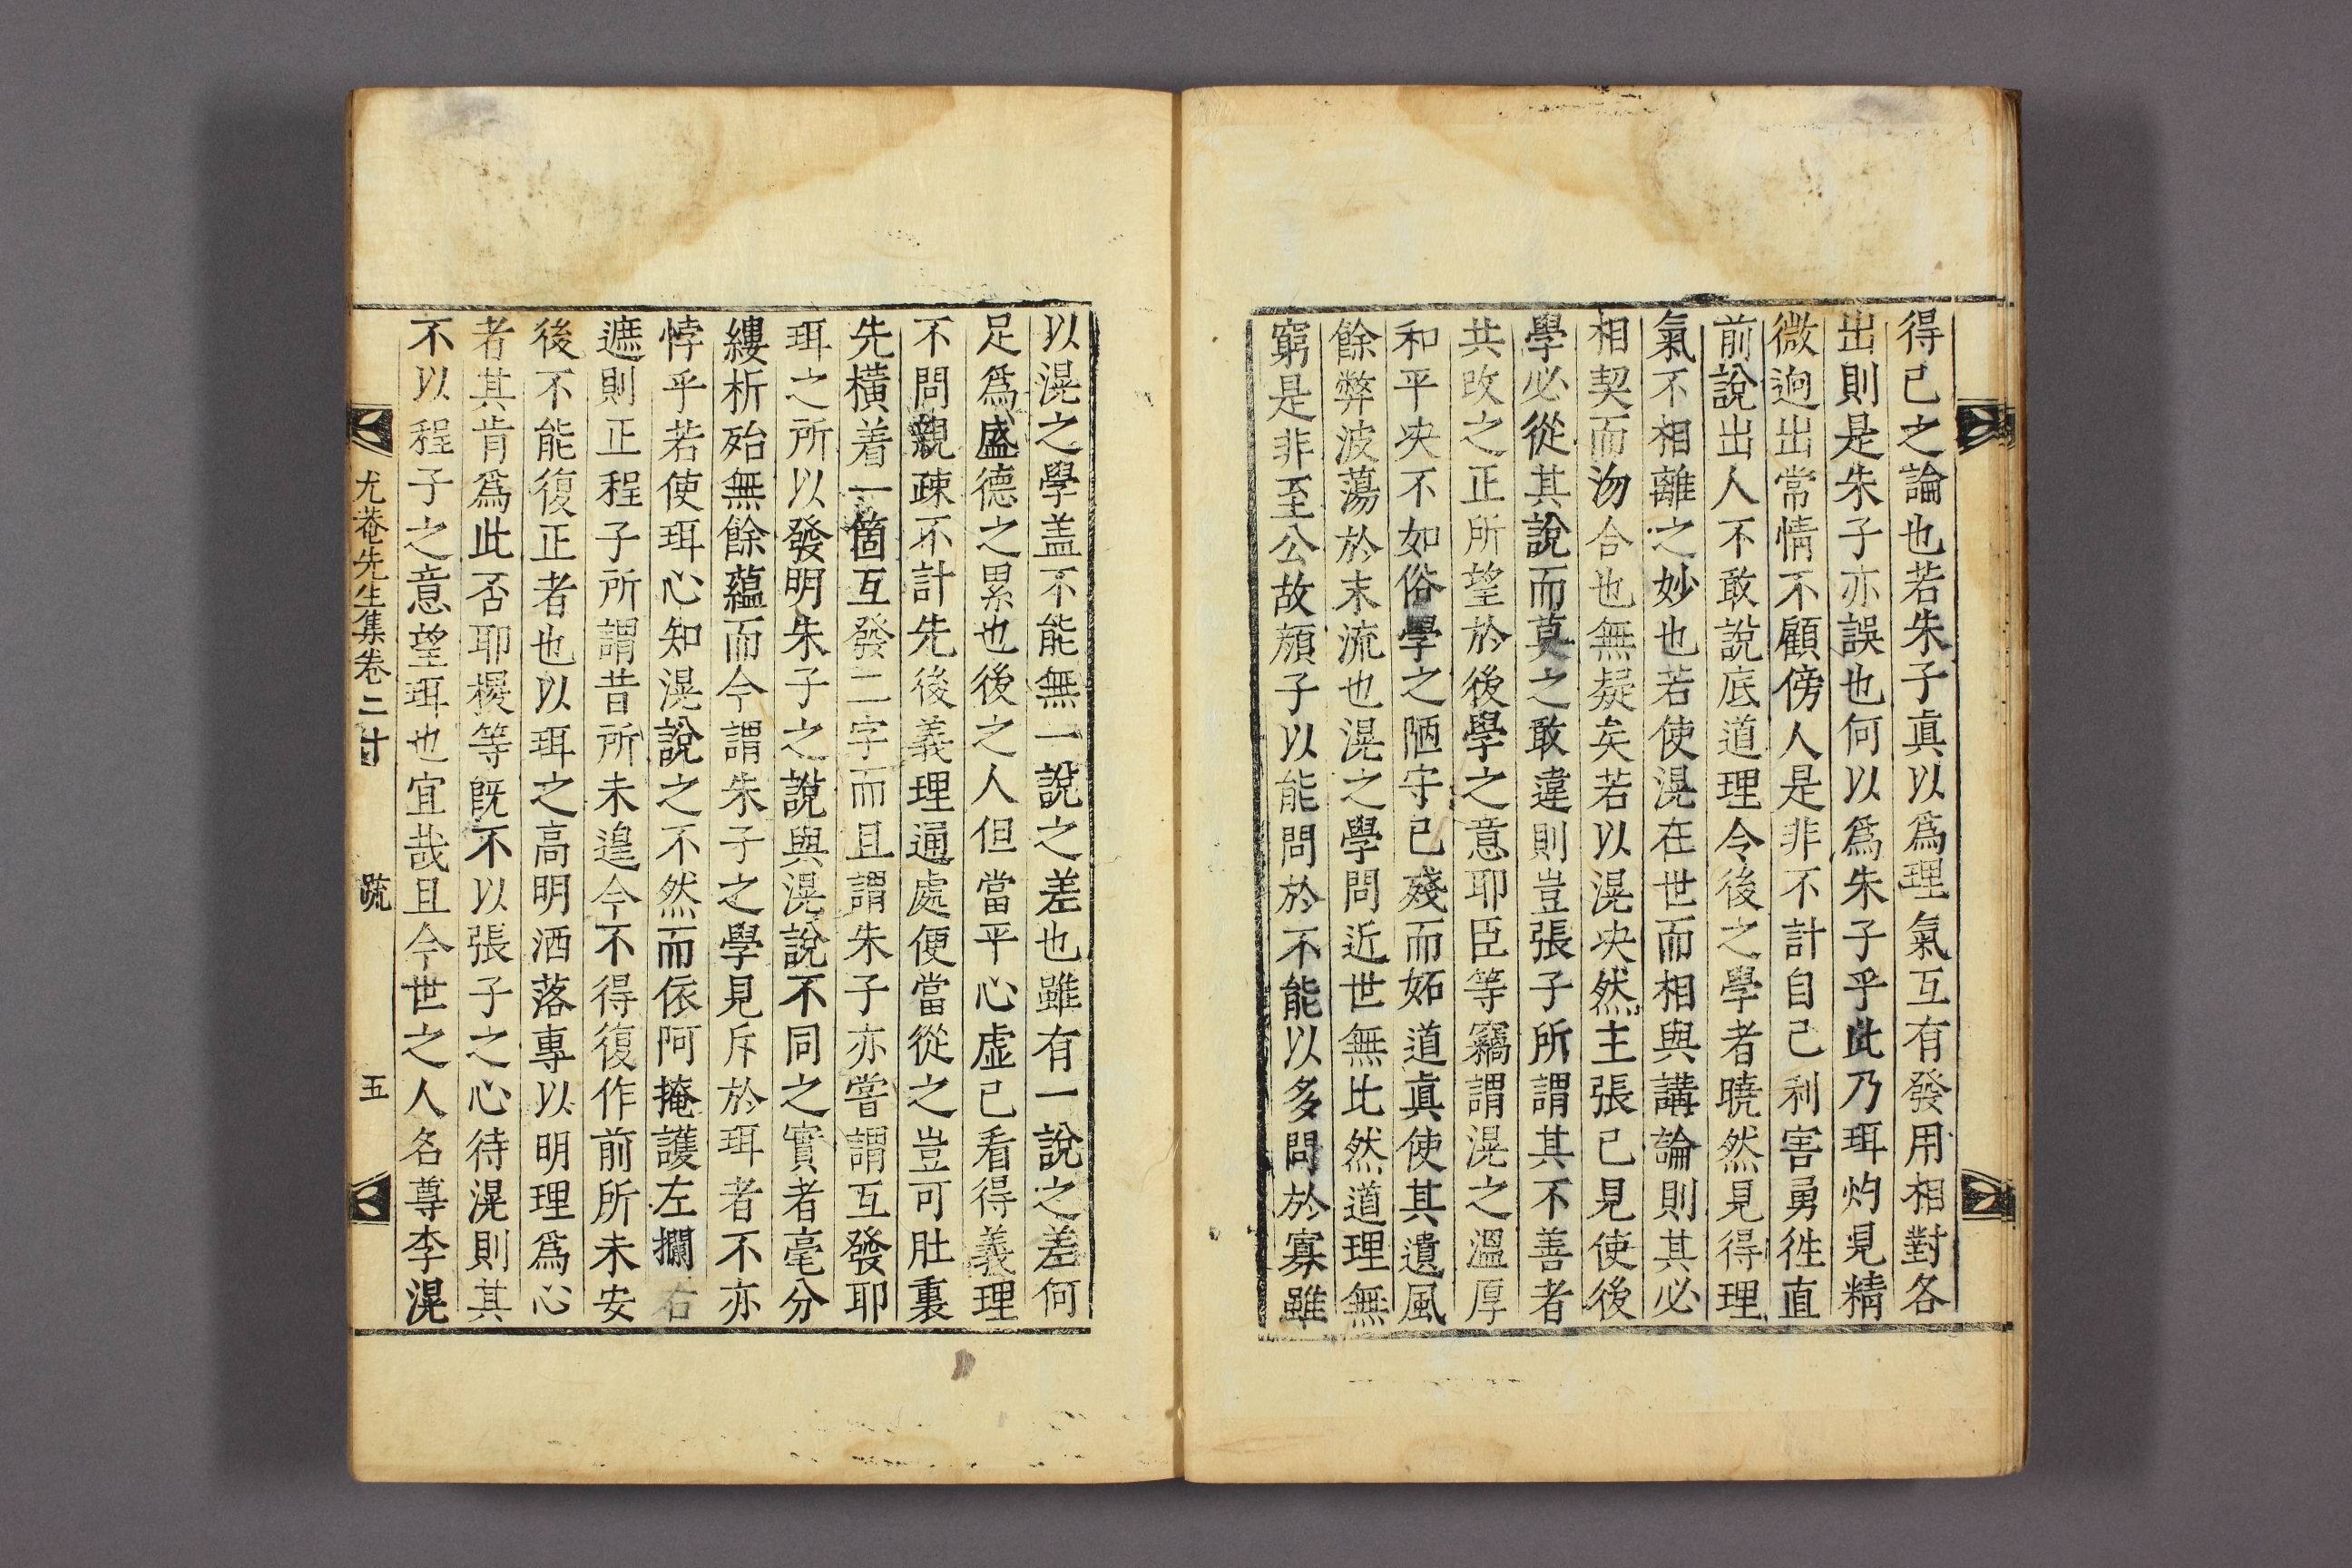 得已之論也若朱子眞以爲理氣互有發用相對各
出則是朱子亦誤也何以爲朱子乎此乃珥灼見精
微逈出常情不顧傍人是非不計自己利害勇徃直
前說出人不敢說底道理令後之學者曉然見得理
氣不相離之妙也若使滉在世而相與講論則其必
相契而沕合也無疑矣若以滉决然主張已見使後
學必從其說而莫之敢違則豈張子所謂其不善者
共改之正所望於後學之意耶臣等竊謂滉之溫厚
和平决不如俗學之陋守已殘而妬道眞使其遺風
餘弊波蕩於末流也滉之學問近世無比然道理無
窮是非至公故顔子以能問於不能以多問於寡雖
以滉之學盖不能無一說之差也雖有一說之差何
足爲盛德之累也後之人但當平心虛已看得義理
不問親疎不計先後義理通處便當從之豈可肚裏
先橫着一箇互發二字而且謂朱子亦嘗謂互發耶
珥之所以發明朱子之說與滉說不同之實者毫分
縷析殆無餘蘊而今謂朱子之學見斥於珥者不亦
悖乎若使珥心知滉說之不然而依阿掩護左攔右
遮則正程子所謂昔所未遑今不得復作前所未安
後不能復正者也以珥之高明洒落專以明理爲心
者其肯爲此否耶榥等旣不以張子之心待滉則其
不以程子之意望珥也宜哉且今世之人名尊李滉
尤菴先生集卷二十 疏 五